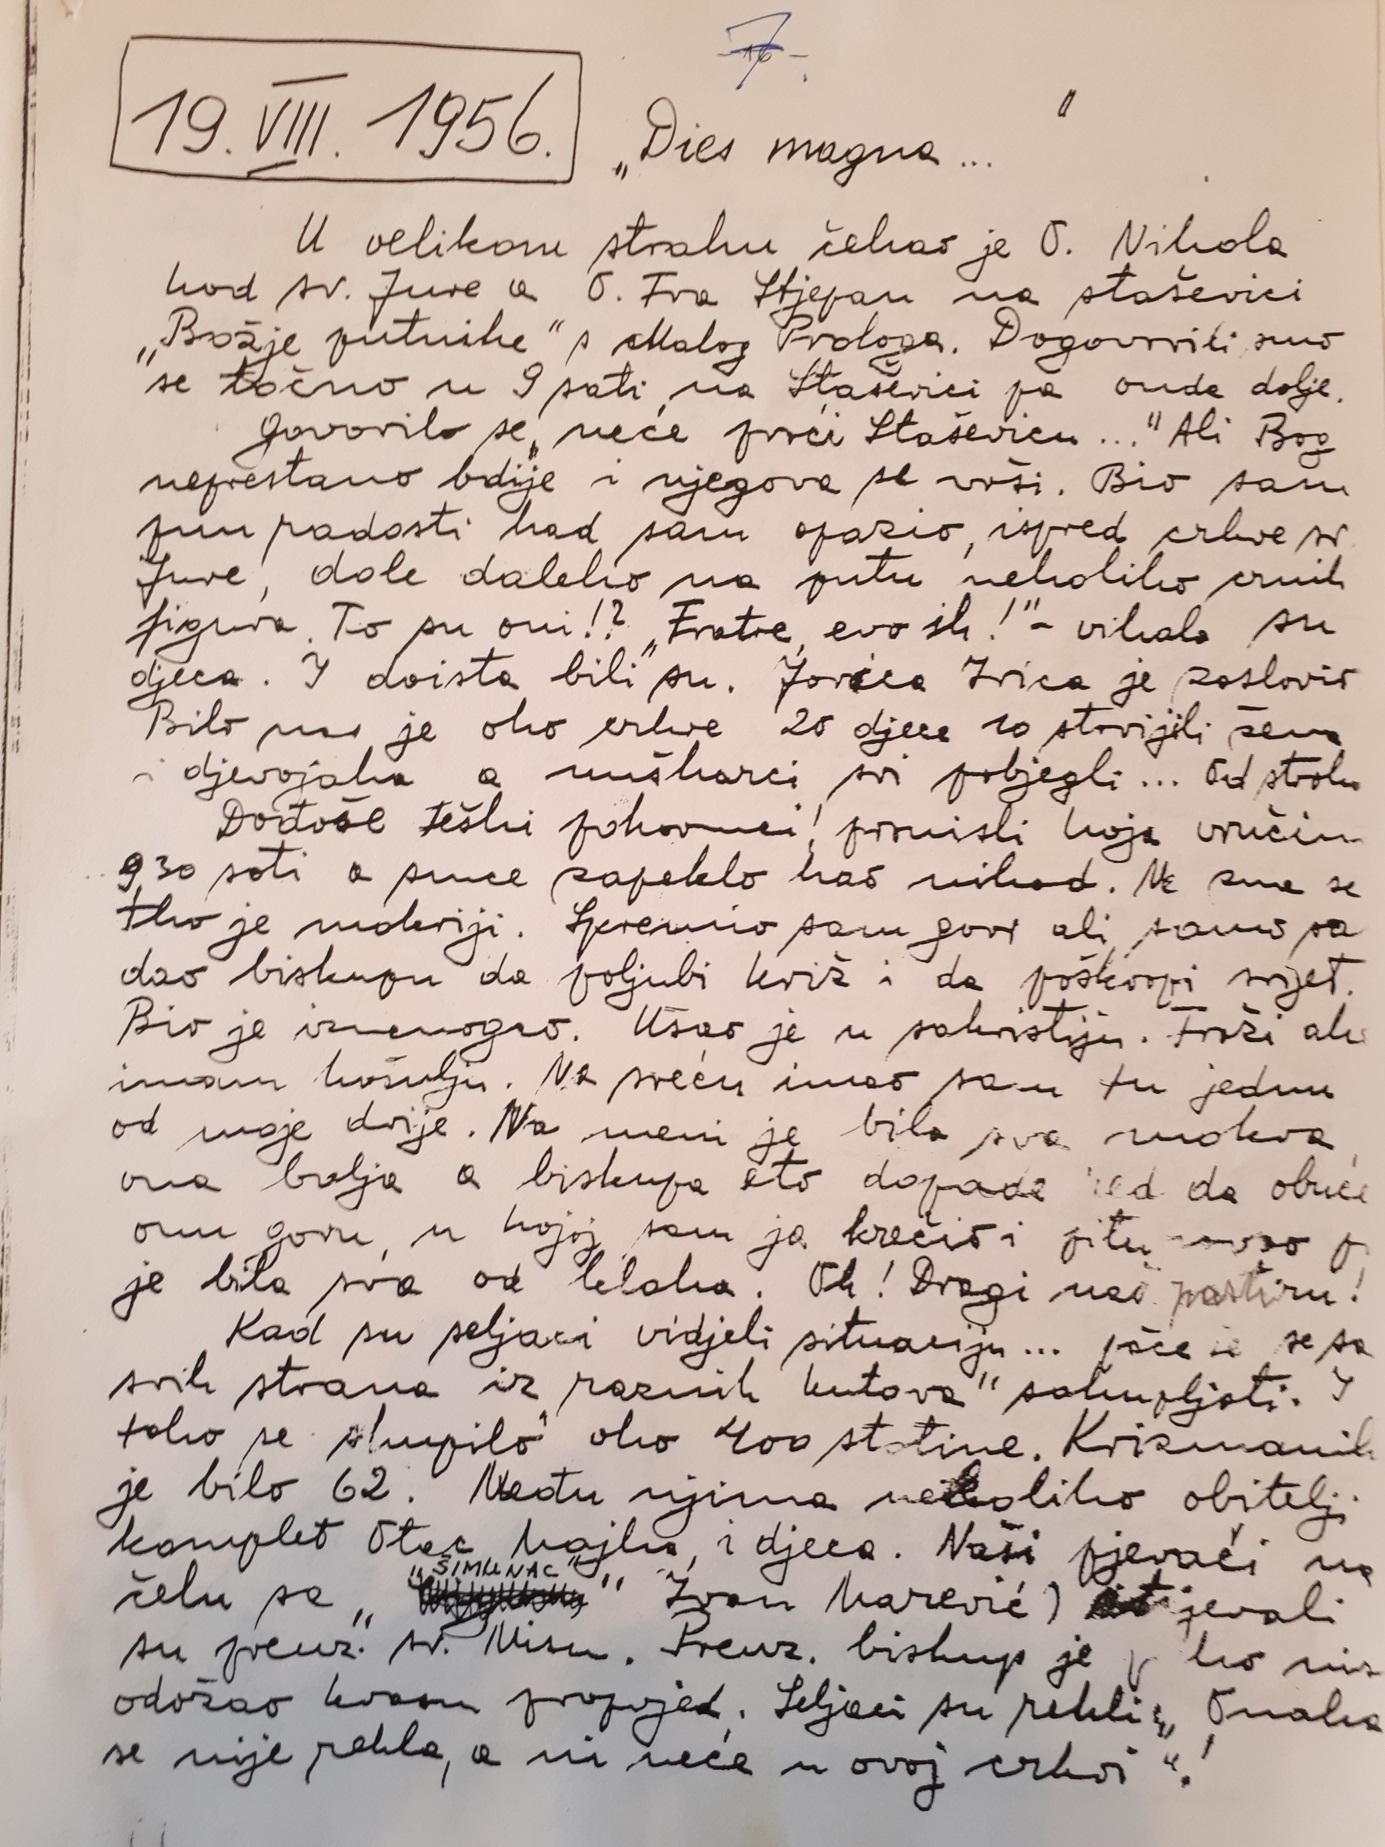 7
19. VIII. 1956.
„Dies magna..."
U velikom strahu čekao je O. Nikola
kod sv. Jure a O. Fra Stjepan na staševici
„Božje putnike" s Malog Prologa. Dogovorili smo
se točno u 9 sati na Staševici pa onda dolje.
Govorilo se „neće proći Staševicu..." Ali Bog
neprestano bdije i njegova se vrši. Bio sam
pun radosti kad sam opazio, ispred crkve sv.
Jure, dole daleko na putu nekoliko crnih
figura. To su oni!? „Fratre, evo ih!" - vikala su
djeca. I doista bili su. Jovića Ivica je zaslovio
Bilo nas je oko crkve 20 djece 10 starijih žena
i djevojaka a muškarci svi pobjegli... Od straha
Dođoše teški pokornici! pomisli koja vrućina
9 30 sati a sunce zapeklo kao nikad. Ne zna se
tko je mokriji. Spremio sam govor ali samo sa
dao biskupu da poljubi križ i da poškropi svijet.
Bio je iznemogao. Ušao je u sakristiju. Traži ako
imam košulju. Na sreću imao sam tu jednu
od moje dvije. Na meni je bila sva mokra,
ona bolja a biskupa eto dopade red da obuče
onu goru, u kojoj sam ja krečio i
je bila sva od klaka. Oh! Dragi naš pastiru!
Kad su seljaci vidjeli situaciju... poče se sa
svih strana iz raznih kutova" sakupljati. I
tako se skupilo oko 400 stotine. Krizmanih
je bilo 62. Među njima nekoliko obitelji
komplet Otac Majka, i djeca. Naši pjevači na
čelu sa „ "ŠIMUNAC" " Ivan Marević) pjevali
su preuz. sv. Misu. Preuz. biskup je
odožao krasnu propojed. Seljaci su rekli: „Onaka
se nije rekla, a ni neće u ovoj crkvi"!